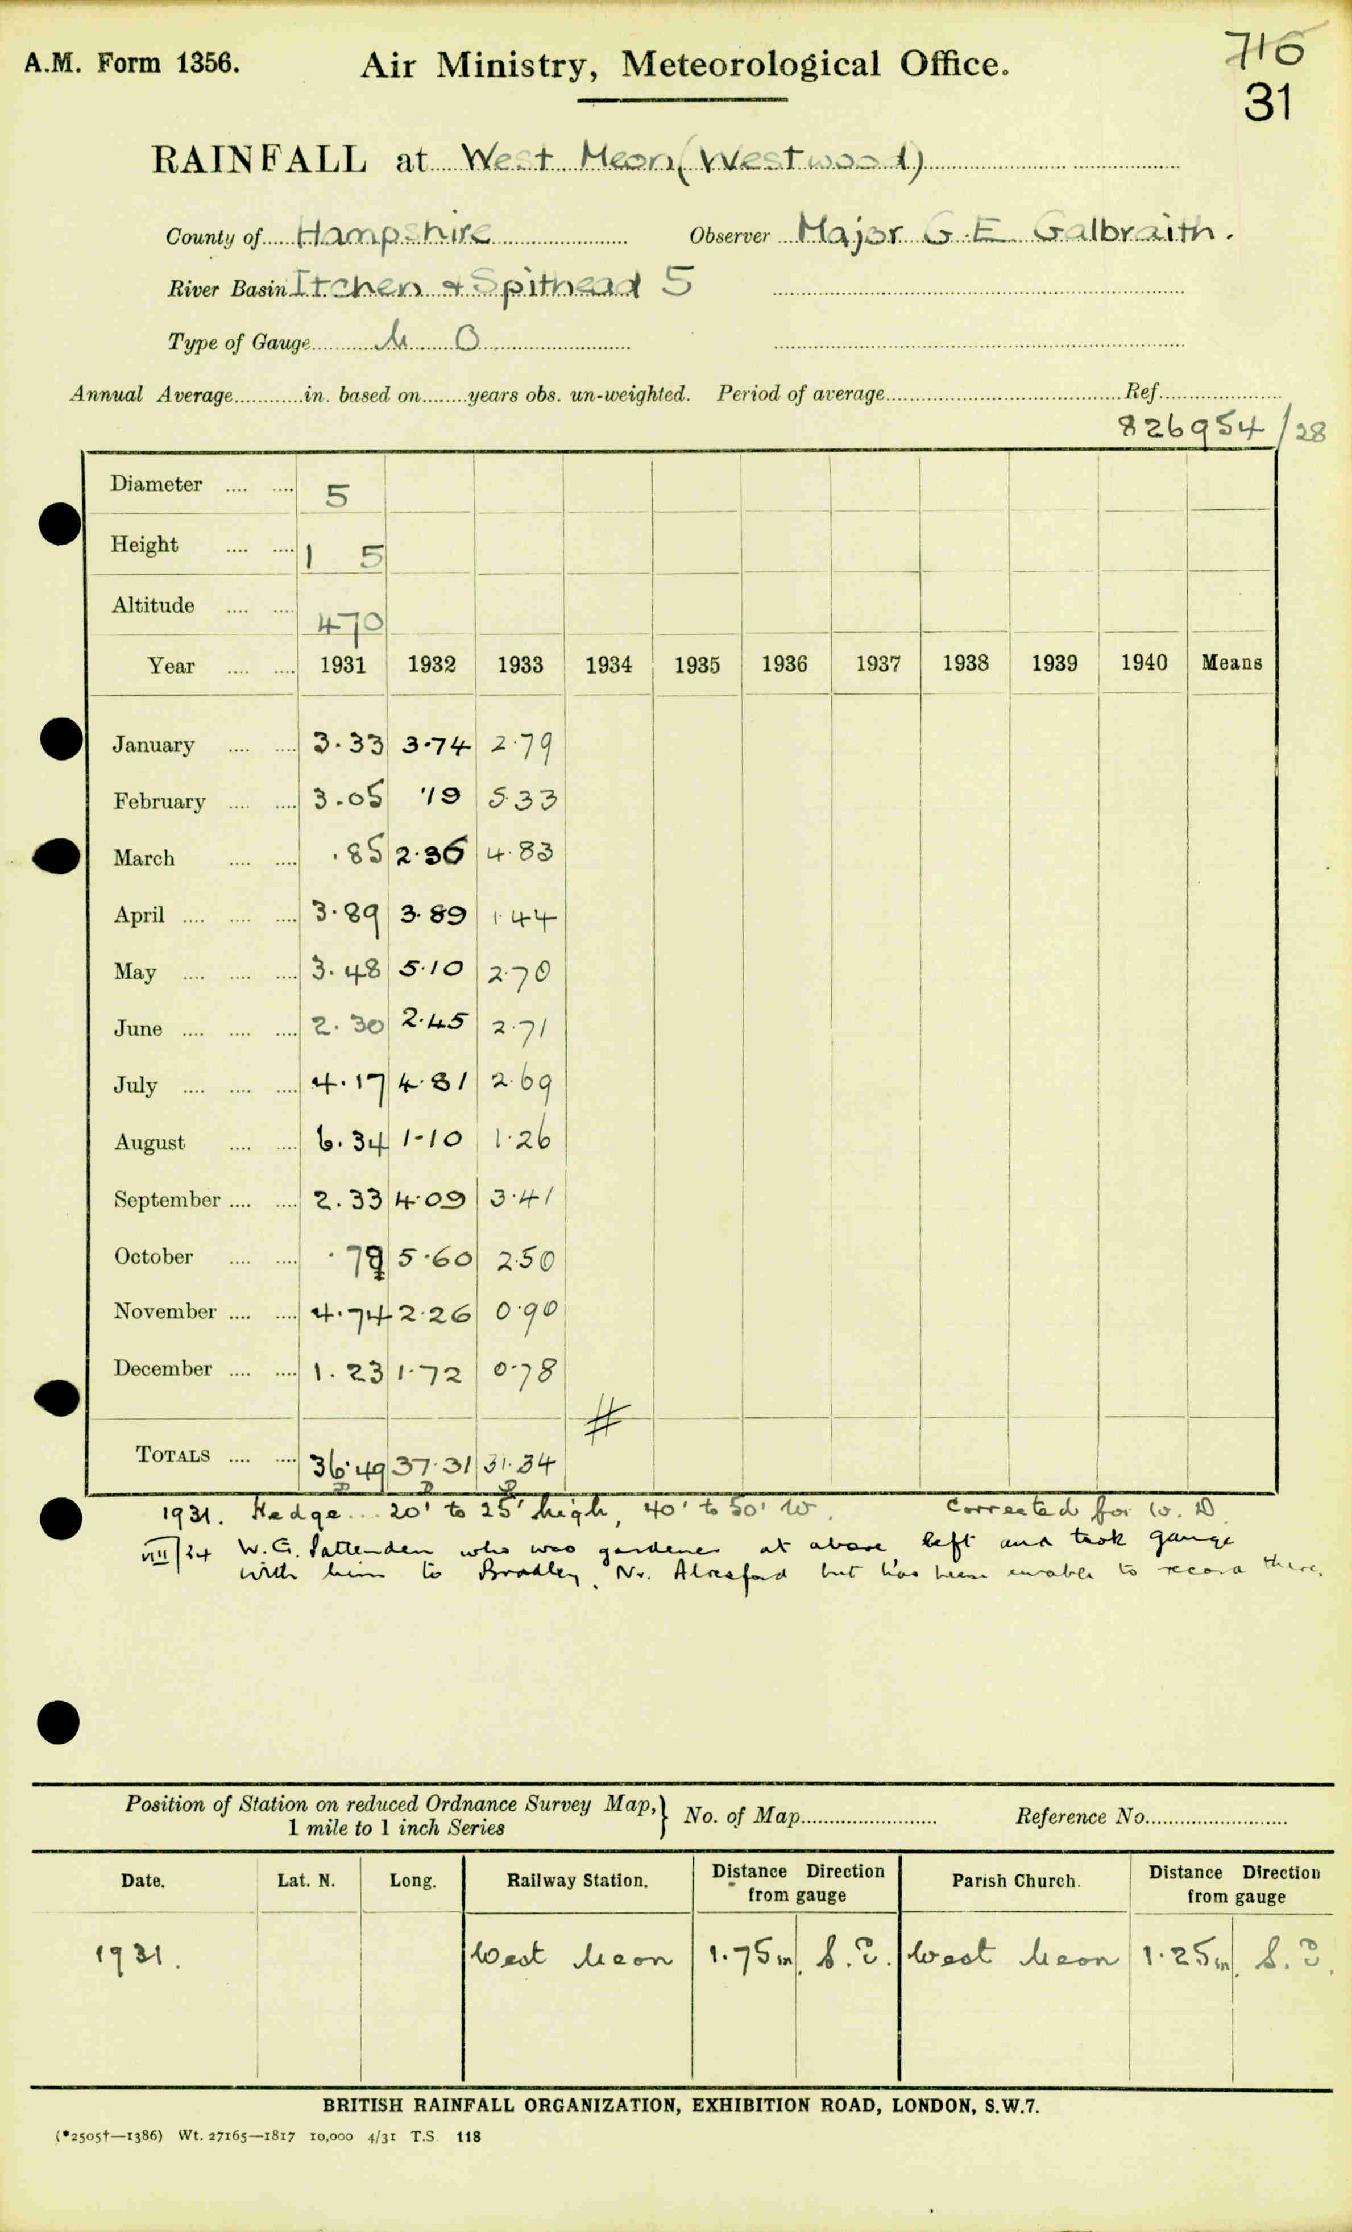 A.M. Form 1356. Air Ministry, Meteorological Office. 716
31
RAINFALL at West Meon (Westwood)
County of Hampshire Observer Major G. E. Galbraith.
River Basin Itchen & Spithead 5
Type of Gauge M O
Annual Average in. based on years obs. un-weighted. Period of average Ref.
826954/28
Diameter 5
Height 1 5
Altitude 470
Year 1931 1932 1933 1934 1935 1936 1937 1938 1939 1940 Means
January 3.33 3.74 2.79
February 3.05 .19 5.33
March .85 2.36 4.83
April 3.89 3.89 1.44
May 3.48 5.10 2.70
June 2.30 2.45 2.71
July 4.17 4.81 2.69
August 6.34 1.10 1.26
September 2.33 4.09 3.41
October .78 5.60 2.50
November 4.74 2.26 0.90
December 1.23 1.72 0.78
#
TOTALS 36.49 37.31 31.34
1931. Hedge 20' to 25' high, 40' to 50' W. Corrected for W. D.
VIII/34 W. G. Pattenden who was gardener at above left and took gauge
with him to Bradley, Nr. Alresford but has been unable to record there.
Position of Station on reduced Ordnance Survey Map, 1 mile to 1 inch Series } No. of Map Reference No.
Date. Lat. N. Long. Railway Station. Distance Direction from gauge Parish Church. Distance Direction from gauge
1931. West Meon 1.75m. S.E. West Meon 1.25m. S.E.
BRITISH RAINFALL ORGANIZATION, EXHIBITION ROAD, LONDON, S.W.7.
(*2505†—1386) Wt. 27165—1817 10,000 4/31 T.S. 118